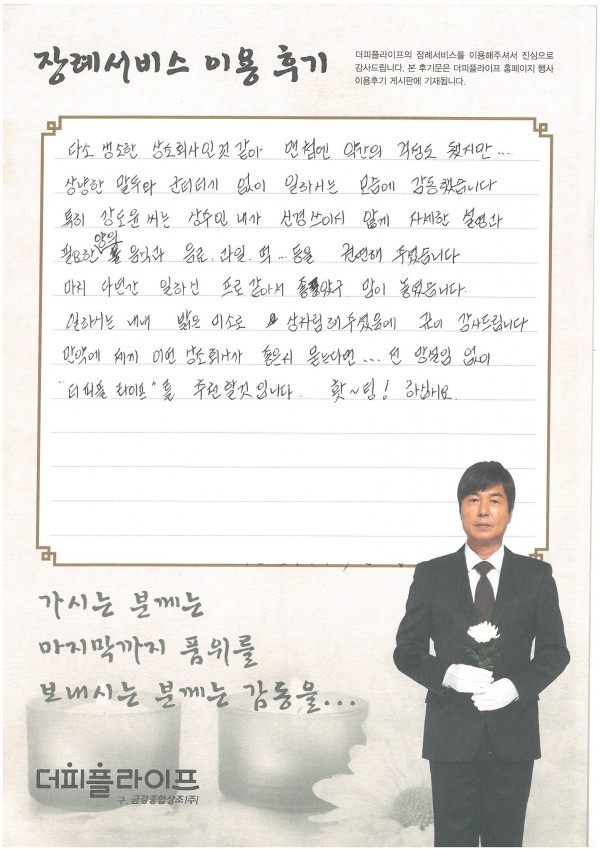 장례서비스 이용 후기
더피플라이프의 장례서비스를 이용해주셔서 진심으로
감사드립니다. 본 후기문은 더피플라이프 홈페이지 행사
이용후기 게시판에 기재됩니다.
다소 생소한 상조회사인것 같아 맨첨엔 약간의 걱정도 됐지만...
상냥한 말투와 군더더기 없이 일하시는 모습에 감동했습니다
특히 강도윤 씨는 상주인 내가 신경쓰이지 않게 자세한 설명과
필요한 양의 음식과 음료. 과일. 떡... 등을 권면해 주셨습니다
마치 다년간 일하신 프로 같아서 좋았구 맘이 놓였습니다.
일하시는 내내 밝은 미소로 상차림해주셨음에 감사드립니다
만약에 제게 어떤 상조회사가 좋은지 묻는다면... 전 망설임 없이
"더피플 라이프"를 추천할것입니다. 홧~팅! 하십시요.
가시는 분께는
마지막까지 품위를
보내시는 분께는 감동을...
더피플라이프
구. 금강종합상조(주)